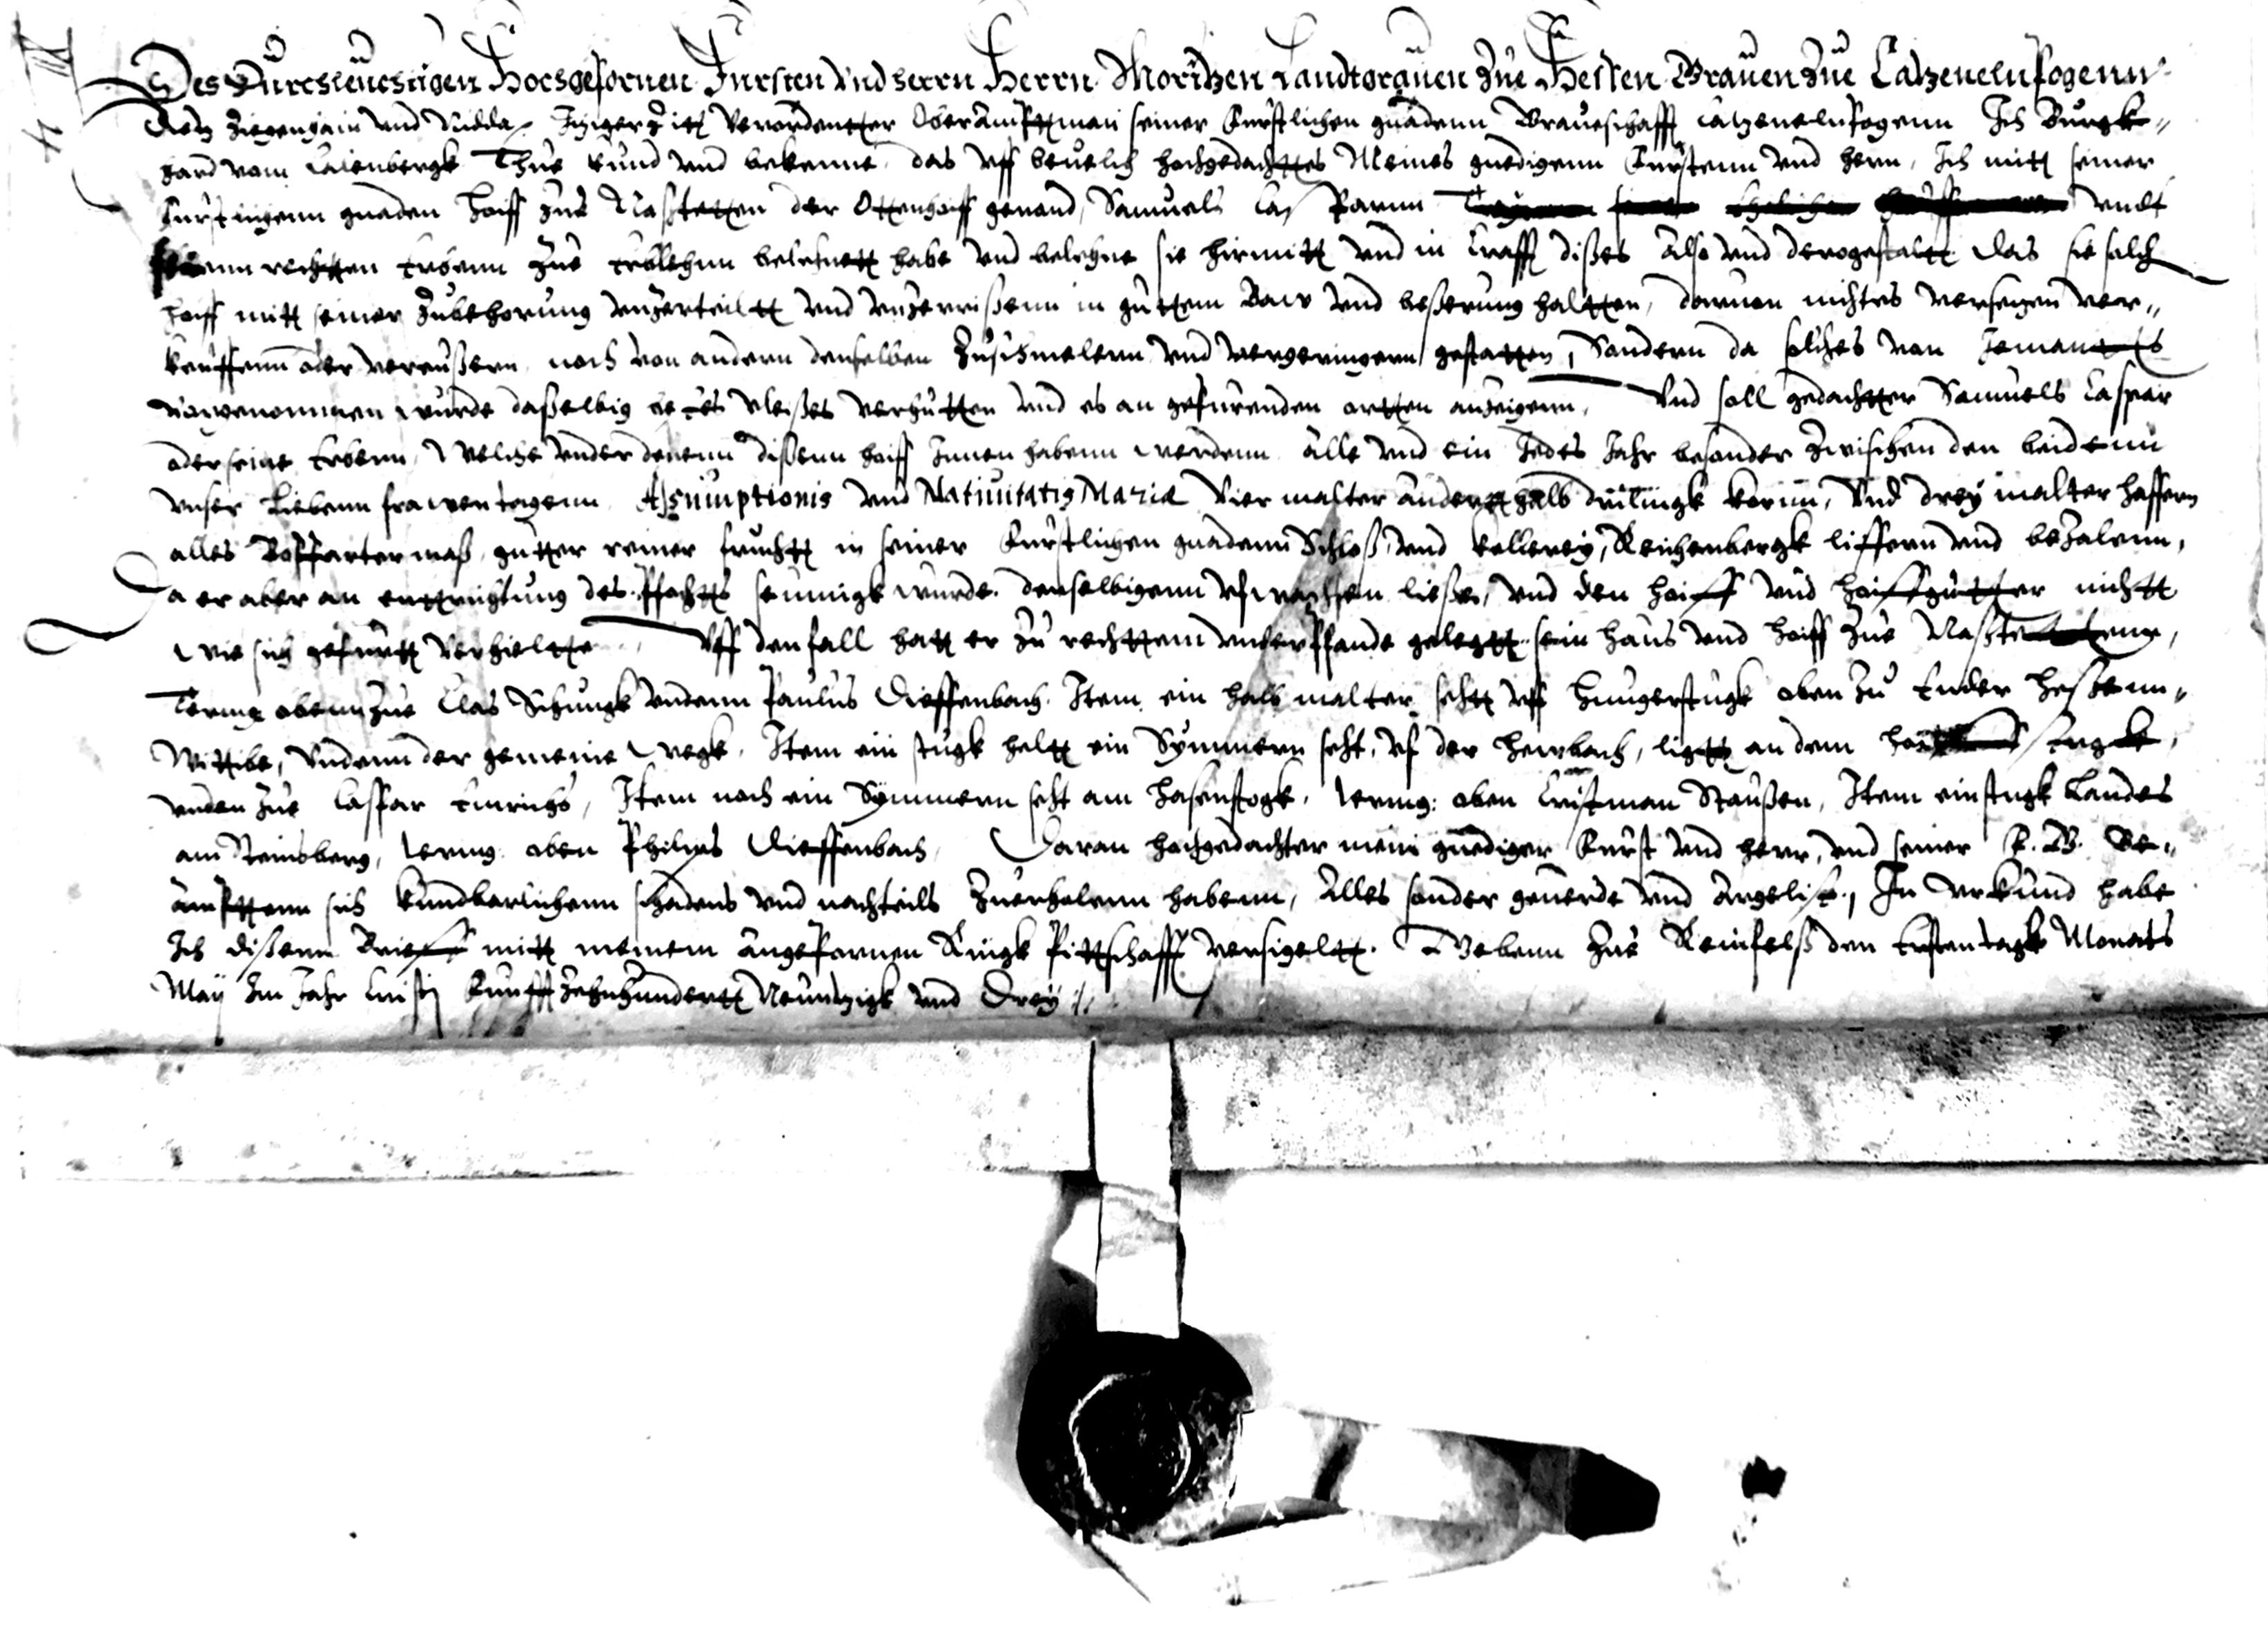 Des Durchleuchtigen Hochgepornen Fursten Vnd herrn Herrn Moritzen Landtgrauen Zue Hessen Grauen Zue Catzenelnpogenn
Dietz Ziegenhain vnd Nidda Itziger Zitt Verordentter Oberamptman seiner Furstlichen gnadenn Graueschafft Catzenelnpogenn Ich Burgk„
hard vom Calenbergk Thue kund vnd bekenne, das vff beuelch hochgedachttes Meines gnedigenn Furstenn vnd hern, Ich mitt seiner
Furstligenn gnaden Hoiff zue Naßtetten der Ottenhoiff genand, Samuels Casparnn vndt
rechtten Erbenn zue Erblehnn belehnett habe vnd belehne sie hirmitt vnd in Crafft dißes Also vnd derogestaltt das sie solch
hoiff mitt seiner Zubehorung vnzerteiltt vnd vnzerrißenn in guttem Baw vnd beßerung haltten, daruon nichtes versetzen ver„
keuffenn oder vereußern noch von andern denselben Zuschmelern vnd vergeringern gestatten, Sondern da solches von Iemants
vorgenommen wurde daßelbig vleißes verhutten vnd es an gepurenden ortten anzeigenn, Vnd soll gedachtter Samuels Caspar
oder seine Erbenn, Welche vnder denenn dißenn hoiff Innen habenn werdenn Alle vnd ein Iedes Jahr besonder Zwischen den beidenn
vnser Liebenn frawen tagenn Assumptionis vnd Natiuitatis Mariæ Vier malter anderthalb Kornn, Vnd drey malter haffern
alles Boppartermaß, gutter reiner frucht in seiner Furstlichen gnadenn Schloß vnd Kellerey, Reichenbergk liffern vnd bezalenn,
Da er aber an enttrichtung des pfachts seumigk wurde denselbigenn vfwachsen ließe, vnd den hoiff vnd hoiffgutter nichtt
wie sich gepurtt verhieltte Vff den fall hatt er zu rechttem vnderpfande gelegtt sein haus vnd hoiff zue Naßtettenn,
Termg obenn zue Clas Schungk vndenn Paulus Dieffenbach. Item ein halb malter sehtt vff Hungerstugk oben zu Ender Heßenn„
Wittibe, Vndenn der gemeine Wegk, Item ein stugk heltt ein Symmern seht, vf der Heinbach, ligtt an dem
vnden zue Caspar Emrichs, Item noch ein Symmern seht am Hasenstogk, termg: oben Cristman Staußen, Item ein stugk Landes
am Reinsberg, termg oben Philips Dieffenbach, Daran hochgedachter mein gnediger Furst vnd herr, vnd seiner F. G. Be„
ampttenn sich kundbarlichenn schadens vnd nachteils Zuerholenn habenn, Alles sonder geuerde vnd Argelist, In vrkund habe
Ich dißenn Brieff mitt meinem angepornen Ringk Pittschafft versigeltt. Gebenn Zue Reinfelß den Ersten tagk Monats
May Im Jahr Cristi Funffzehnhundertt Neuntzigk vnd Drey